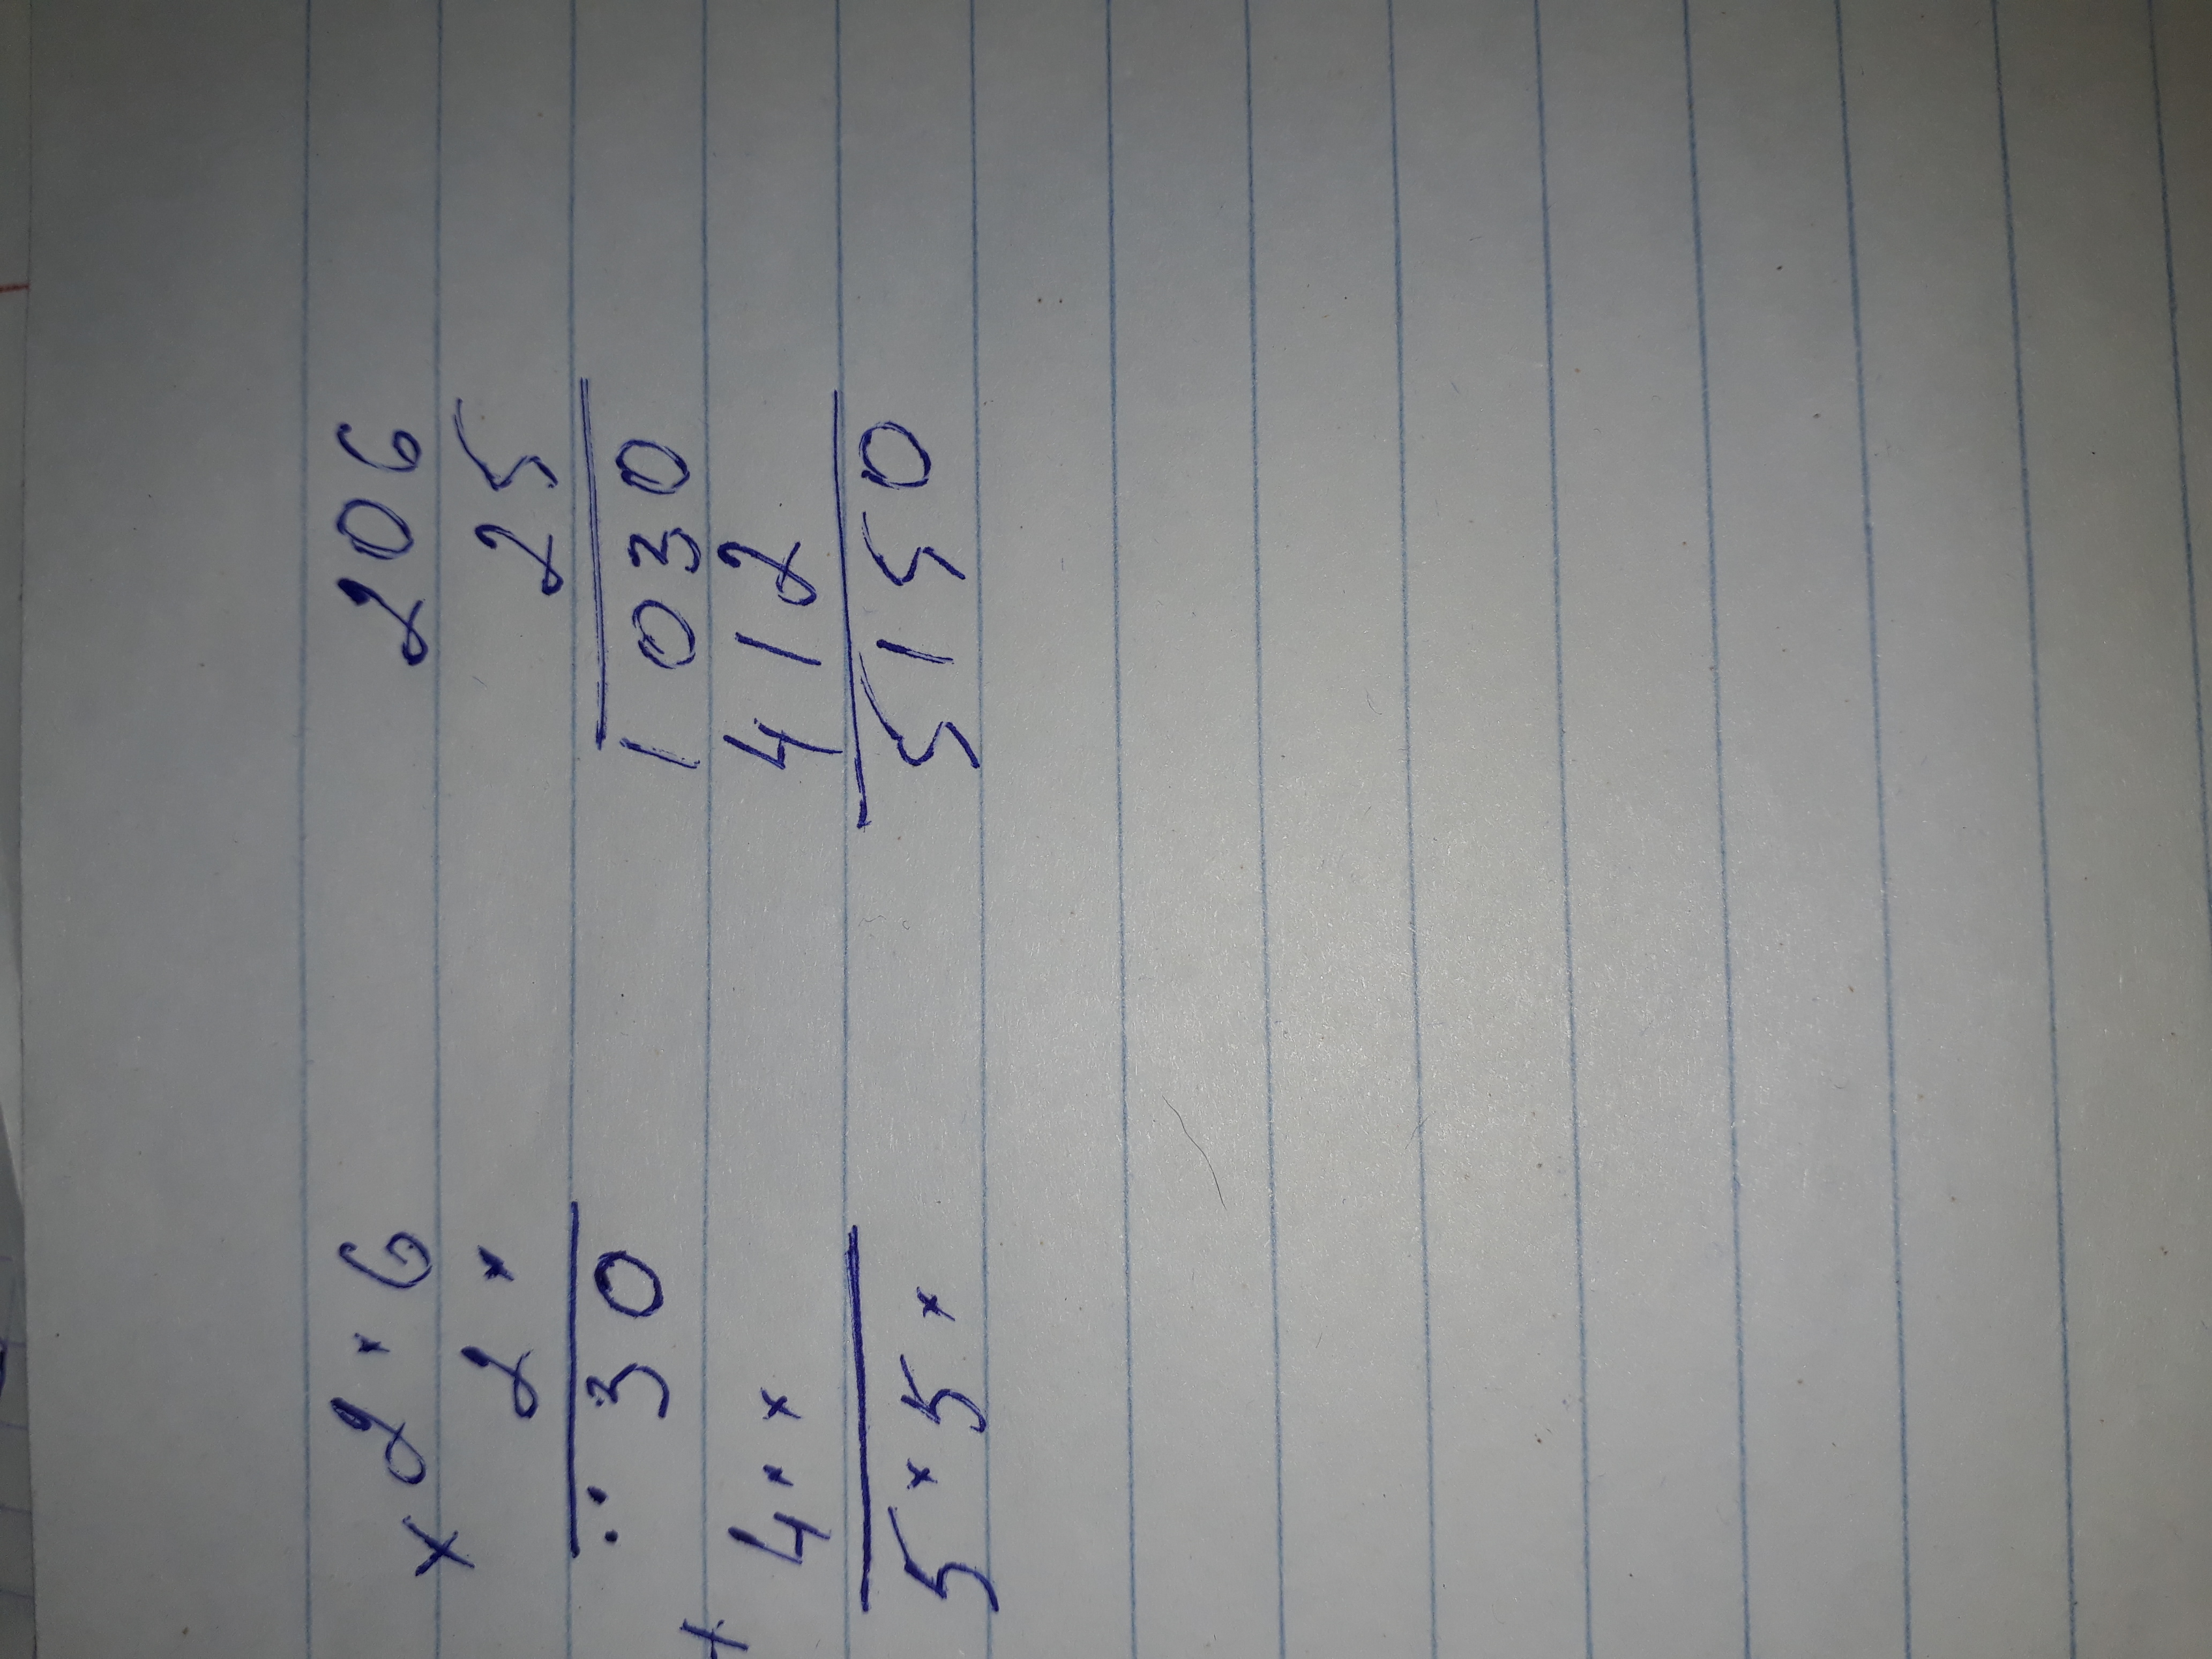 × 2 * 6 206
2 * 25
* * 3 0 1030
+ 4 * * 412
5 * 5 * 5150